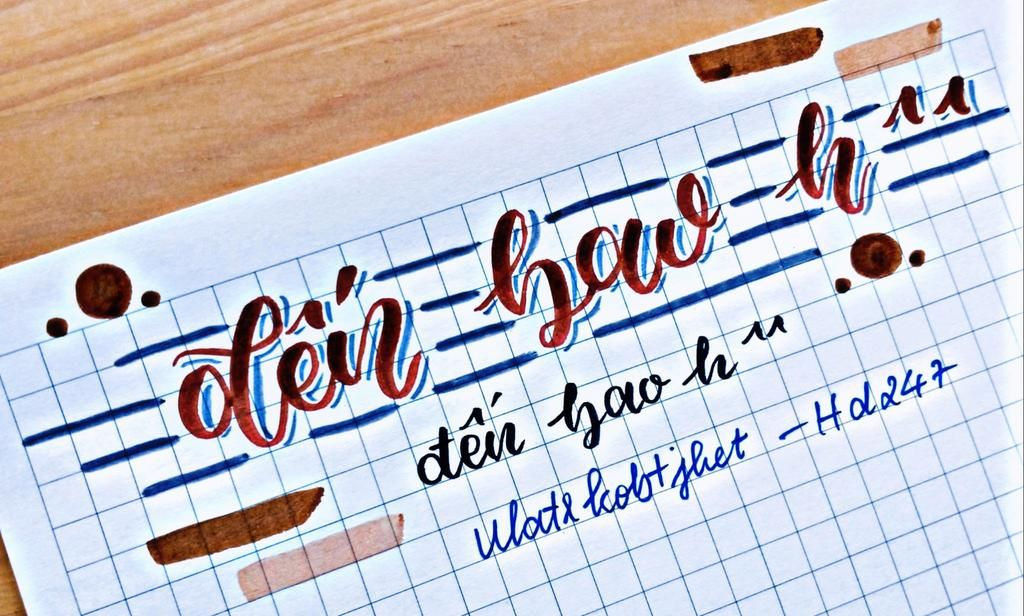 đến bao h "
đến bao h "
Ulatr kobtjhet - Hd247